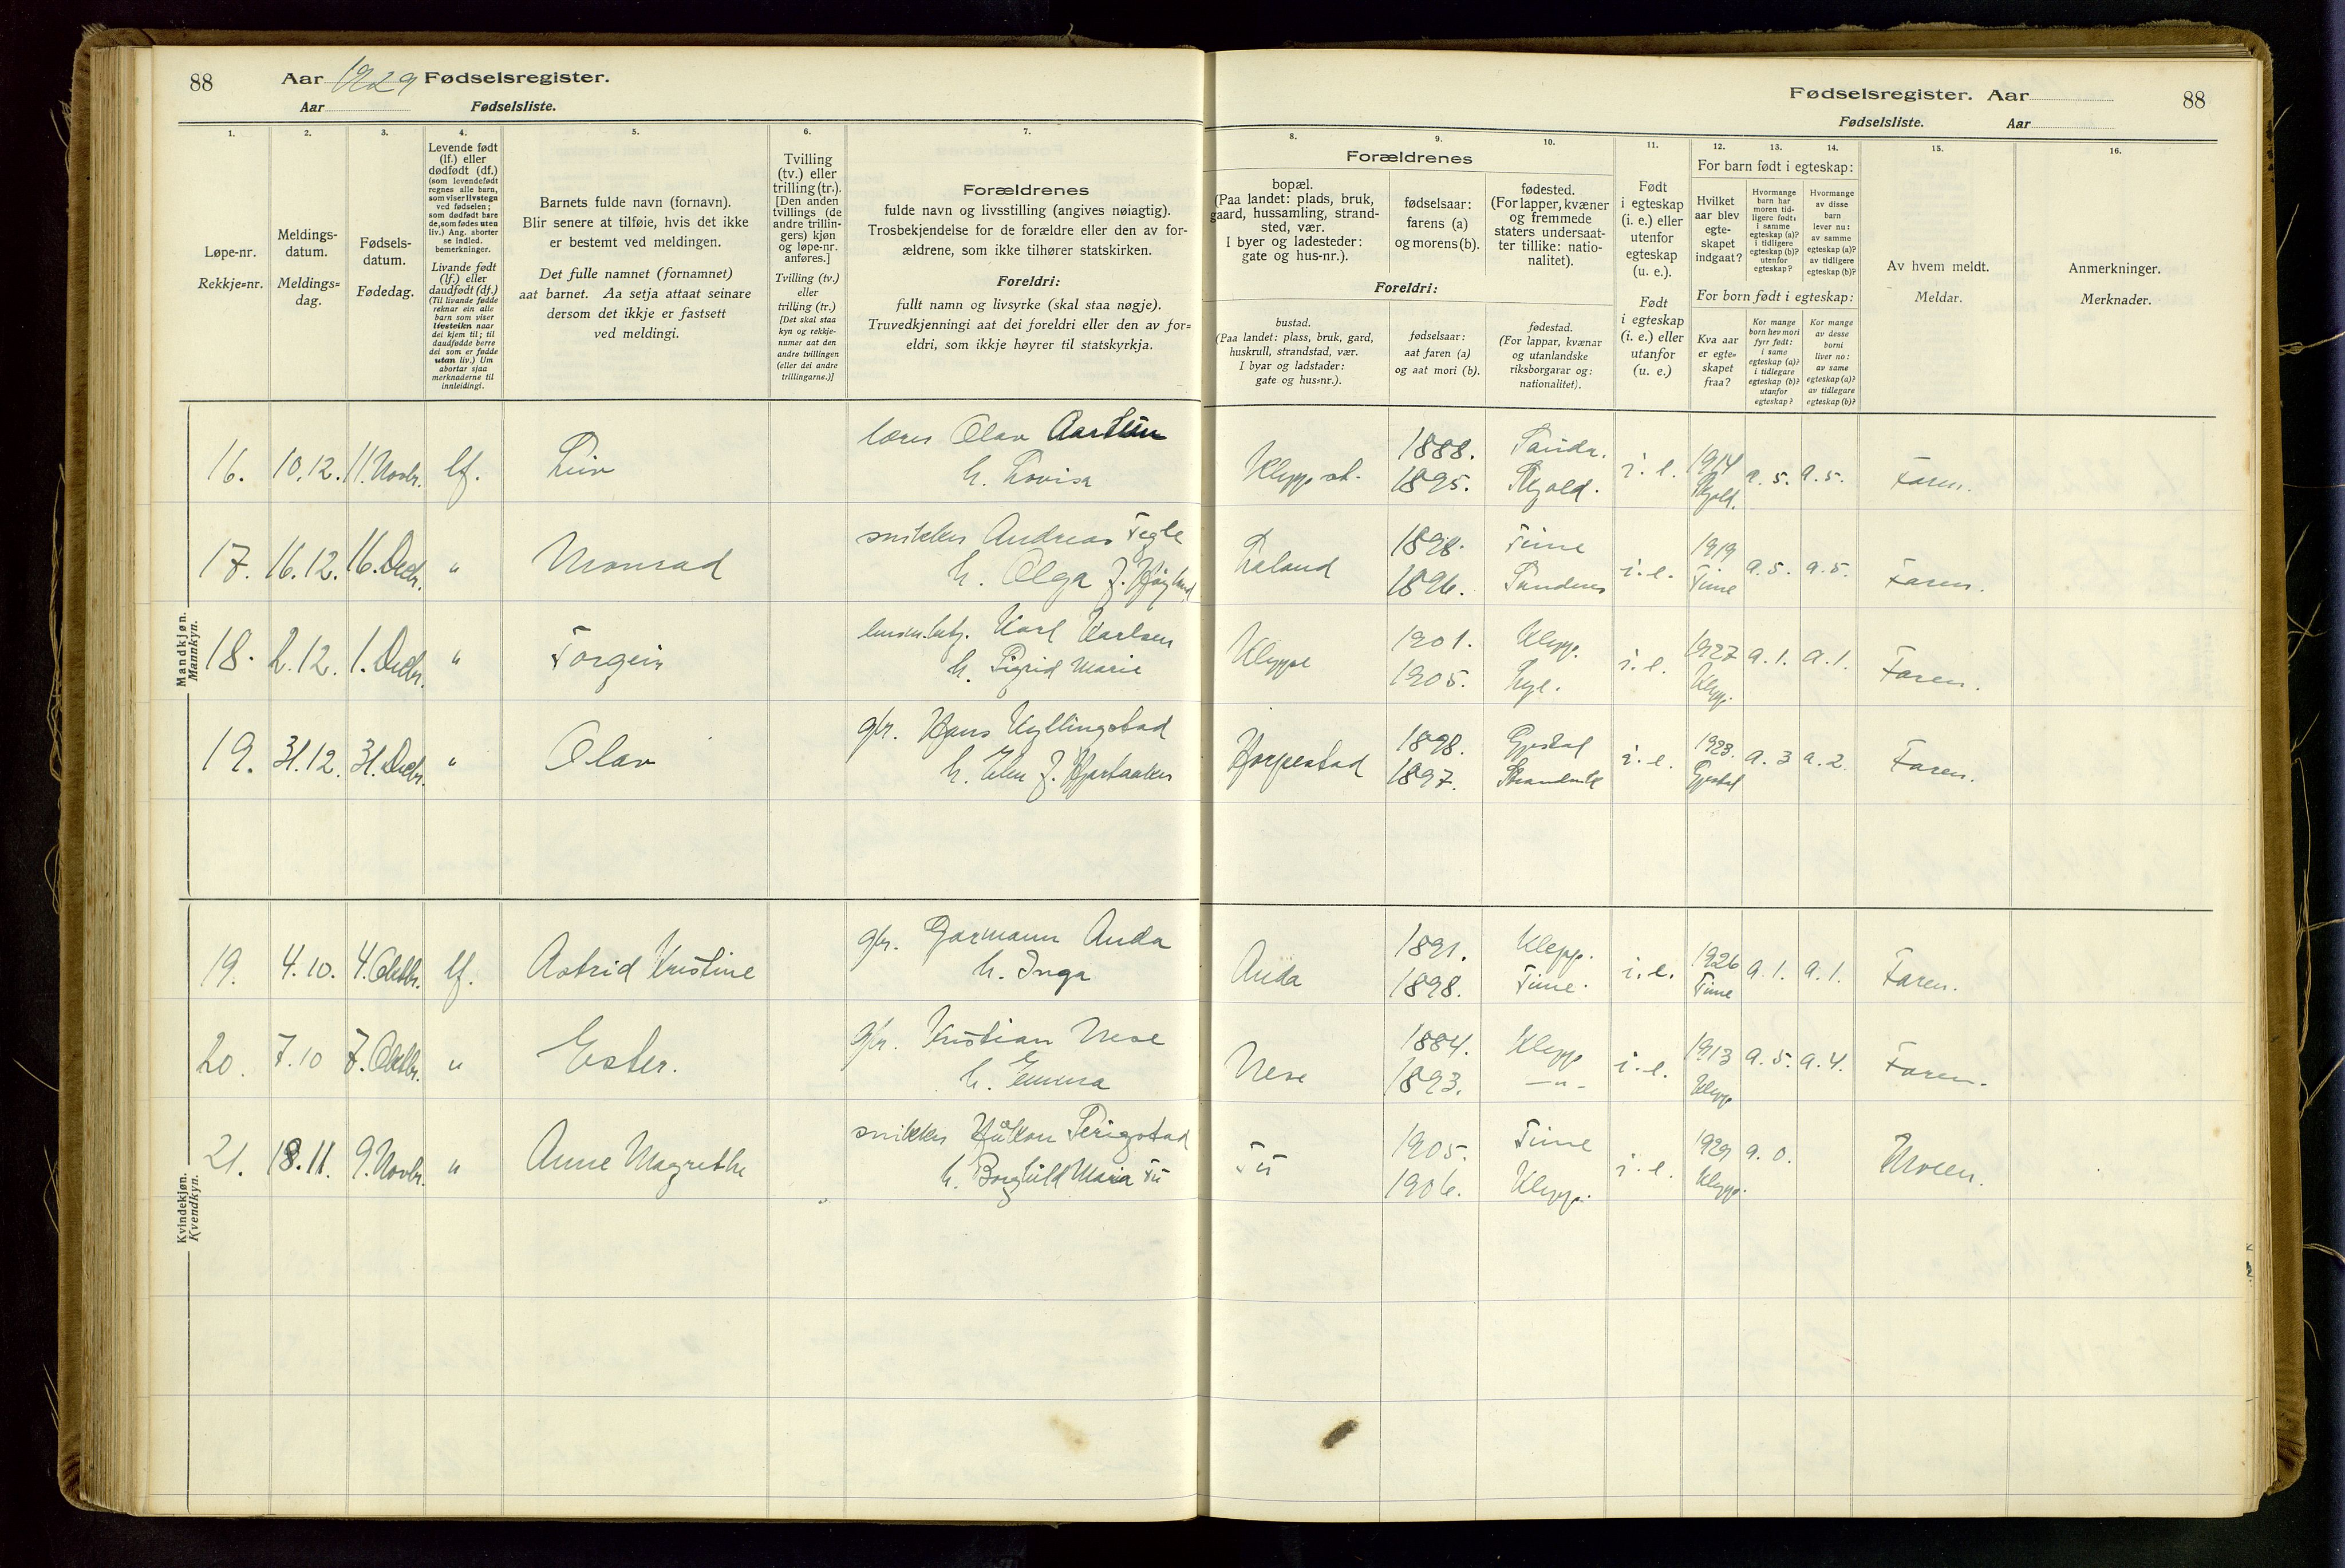 88 Aar 1929 Fødselsregister.
Aar Fødselsliste.
1. 2. 3. 4. 5. 6. 7.
Løpe-nr.
Rekkje-nr.
Meldings-
datum.
Meldings-
dag.
Fødsels-
datum.
Fødedag.
Levende født
(lf.) eller
dødfødt (df.)
(som levendefødt
regnes alle barn,
som viser livstegn
ved fødselen;
som dødfødt bare
de, som fødes uten
liv.) Ang. aborter
se indled.
bemerkninger.
Livande født
(lf.) eller
daudfødt (df.)
(Til livande fødde
reknar ein alle
barn som viser
livsteikn naar
dei kjem til; til
daudfødde berre
dei som er fødde
utan liv.) Um
abortar sjaa
merknaderne til
innleidingi.
Barnets fulde navn (fornavn).
Blir senere at tilføie, hvis det ikke
er bestemt ved meldingen.
Det fulle namnet (fornamnet)
aat barnet. Aa setja attaat seinare
dersom det ikkje er fastsett
ved meldingi.
Tvilling
(tv.) eller
trilling (tr.).
[Den anden
tvillings (de
andre trillin-
gers) kjøn
og løpe-nr.
anføres.]
Tvilling (tv.)
eller
trilling (tr.)
[Det skal staa
kyn og rekkje-
numer aat den
andre tvillingen
(eller dei andre
trillingarne.)]
Forældrenes
fulde navn og livsstilling (angives nøiagtig).
Trosbekjendelse for de forældre eller den av for-
ældrene, som ikke tilhører statskirken.
Foreldri:
fullt namn og livsyrke (skal staa nøgje).
Truvedkjenningi aat dei foreldri eller den av for-
eldri, som ikkje høyrer til statskyrkja.
Fødselsregister. Aar 88
Fødselsliste. Aar
8. 9. 10. 11. 12. 13. 14. 15. 16.
Forældrenes
bopæl.
(Paa landet: plads, bruk,
gaard, hussamling, strand-
sted, vær.
I byer og ladesteder:
gate og hus-nr.).
fødselsaar:
farens (a)
og morens (b).
fødested.
(For lapper, kvæner
og fremmede
staters undersaat-
ter tillike: natio-
nalitet).
Foreldri:
bustad.
(Paa landet: plass, bruk, gard,
huskrull, strandstad, vær.
I byar og ladstader:
gate og hus-nr.).
fødselsaar:
aat faren (a)
og aat mori (b).
fødestad.
(For lappar, kvænar
og utanlandske
riksborgarar og:
nationalitet).
Født
i egteskap
(i. e.) eller
utenfor
egteskap
(u. e.).
Født
i egteskap
(i. e.) eller
utanfor
(u. e.)
For barn født i egteskap:
Hvilket
aar blev
egte-
skapet
indgaat?
Hvormange
barn har
moren tid-
ligere født:
i samme
egteskap (a)?
i tidligere
egteskap (b)?
utenfor
egteskap?
Hvormange
av disse
barn
lever nu:
av samme
egteskap (a)?
av tidligere
egteskap (b)?
For born født i egteskap:
Kva aar
er egte-
skapet
fraa?
Kor mange
born hev mori
fyrr født:
i same
egteskap (a)?
i tidlegare
egteskap (b)?
utanfor
egteskap?
Kor mange
av desse
borni
liver no:
av same
egteskap (a)?
av tidlegare
egteskap (b)?
Av hvem meldt.
Meldar.
Anmerkninger.
Merknader.
Mandkjøn.
Mannkyn.
16. 10.12. 11. Novbr. lf. Liv lærer Olav Klepp st. 1888. i. e. 1914 a. 5. a. 5. Faren.
h. Lovisa 1895. Skjold. Skjold.
17. 16.12. 16. Decbr. " Monrad snikker Andreas Tegle Laland 1898. Time i. e. 1919 a. 5. a. 5. Faren.
h. Olga f. 1896. Time
18. 2.12. 1. Decbr. " Torgeir Karl Karlsen Kleppe 1901. Klepp. i. e. 1927 a. 1. a. 1. Faren.
h. Sigrid Marie 1905. Lye. Klepp.
19. 31.12. 31. Decbr. " Olav gbr. Hans Kyllingstad Horpestad 1898. Gjestal i. e. 1923. a. 3 a. 2. Faren.
h. f. 1897. Gjestal
Kvindekjøn.
Kvendkyn.
19. 4.10. 4. Oktbr. lf. Astrid Kristine gbr. Garmann Anda Anda 1891. Klepp. i. e. 1926 a. 1. a. 1. Faren.
h. Inga 1898. Time. Time
20. 7.10 7. Oktbr. " Ester. gbr. Kristian Nese Nese 1884. Klepp i. e. 1913 a. 5. a. 4. Faren.
h. Emma 1893. — " - Klepp
21. 18.11. 9. Novbr. " Anne Magrethe snikker Håkon Serigstad Tu 1905. Time i. e. 1929 a. 0. Moren.
h. Borghild Maria Tu 1906. Klepp. Klepp.